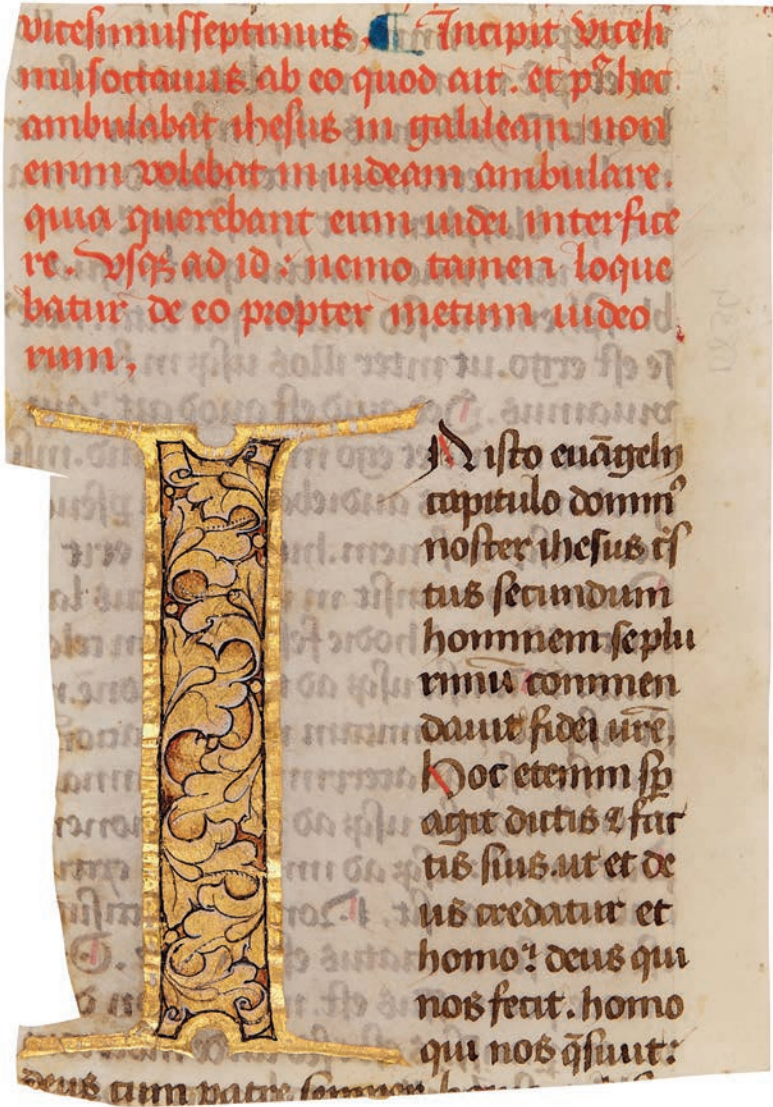 vicesimusseptimus. ¶ Incipit vicesi
musoctauus ab eo quod ait. et p⁹ hec
ambulabat ihesus in galileam non
enim volebat in iudeam ambulare.
quia querebant eum iudei interfice
re. vsq3 ad id: nemo tamen loque
batur de eo propter metum iudeo
rum.
IN isto euāgelij
capitulo domin⁹
noster ihesus c̄s
tus secundum
hominem se plu
rimū commen
dauit fidei vr̄e.
Hoc etenim sp̄
agit dictis ⁊ fac
tis suis. ut et de
us credatur et
homo: deus qui
nos fecit. homo
qui nos q̄siuit:
deus cum patre semper